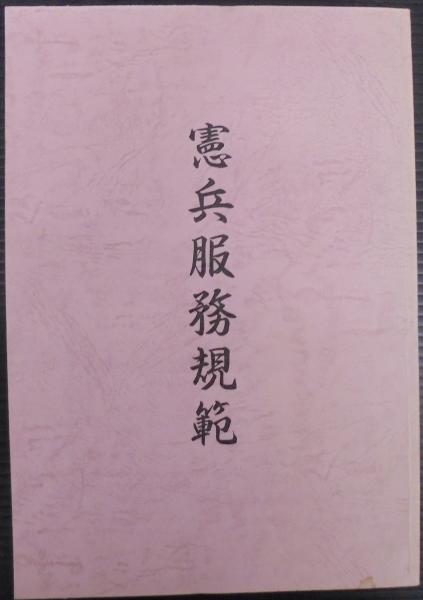 憲兵服務規範